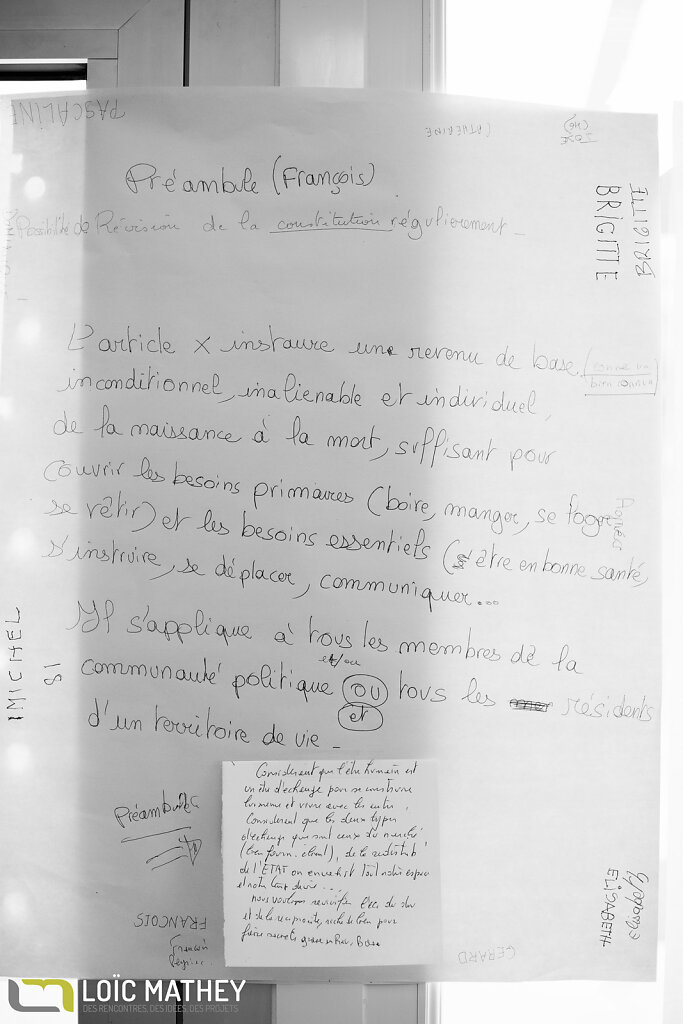 PASCALINE
CATHERINE
JOSE
Préambule (François)
Possibilité de Révision de la constitution régulièrement _
BRIGITTE
BRIGITTE
L'article X instaure une revenu de base
inconditionnel, inalienable et individuel,
de la naissance à la mort, suffisant pour
couvrir les besoins primaires (boire, manger, se loger,
se vêtir) et les besoins essentiels ( être en bonne santé,
s'instruire, se déplacer, communiquer...
Agnès
Il s'applique à tous les membres de la
et/ou
communauté politique ou tous les résidents
et
d'un territoire de vie _
MICHEL
SI
Préambule
Considérant que l'être humain est
un être d'échange pour se construire
lui même et vivre avec les autres,
Considérant que les deux types
d'échange que sont ceux du marché
de l'ETAT ont envahit tout notre espace
et notre temps de vie...
nous voulons revivifier celui du don
et de la réciprocité,
Base
FRANCOIS
François
ELISABETH
GERARD
LOÏC MATHEY
DES RENCONTRES, DES IDÉES, DES PROJETS